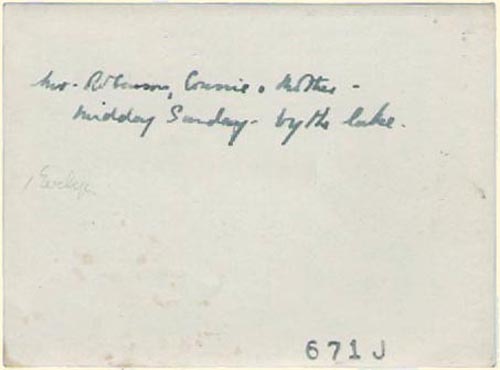 Mrs. Robinson, Connie & Mother -
Midday Sunday - by the lake.
Evelyn
671J